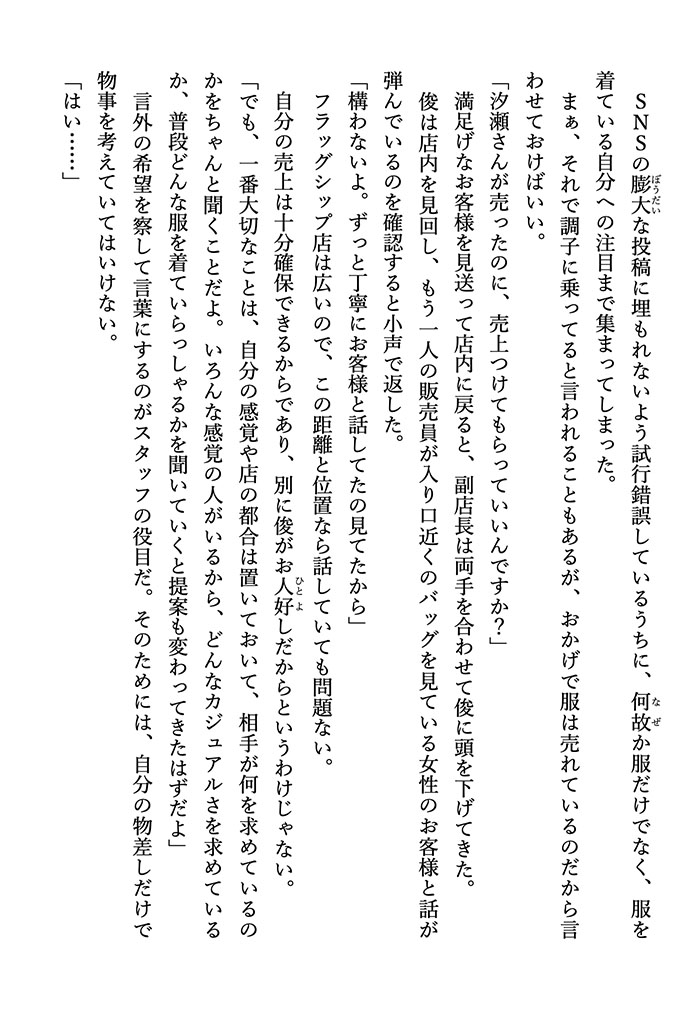 SNSの膨大な投稿に埋もれないよう試行錯誤しているうちに、何故か服だけでなく、服を
着ている自分への注目まで集まってしまった。
　まぁ、それで調子に乗ってると言われることもあるが、おかげで服は売れているのだから言
わせておけばいい。
「汐瀬さんが売ったのに、売上つけてもらっていいんですか？」
　満足げなお客様を見送って店内に戻ると、副店長は両手を合わせて俊に頭を下げてきた。
　俊は店内を見回し、もう一人の販売員が入り口近くのバッグを見ている女性のお客様と話が
弾んでいるのを確認すると小声で返した。
「構わないよ。ずっと丁寧にお客様と話してたの見てたから」
　フラッグシップ店は広いので、この距離と位置なら話していても問題ない。
　自分の売上は十分確保できるからであり、別に俊がお人好しだからというわけじゃない。
「でも、一番大切なことは、自分の感覚や店の都合は置いておいて、相手が何を求めているの
かをちゃんと聞くことだよ。いろんな感覚の人がいるから、どんなカジュアルさを求めている
か、普段どんな服を着ていらっしゃるかを聞いていくと提案も変わってきたはずだよ」
　言外の希望を察して言葉にするのがスタッフの役目だ。そのためには、自分の物差しだけで
物事を考えていてはいけない。
「はい……」